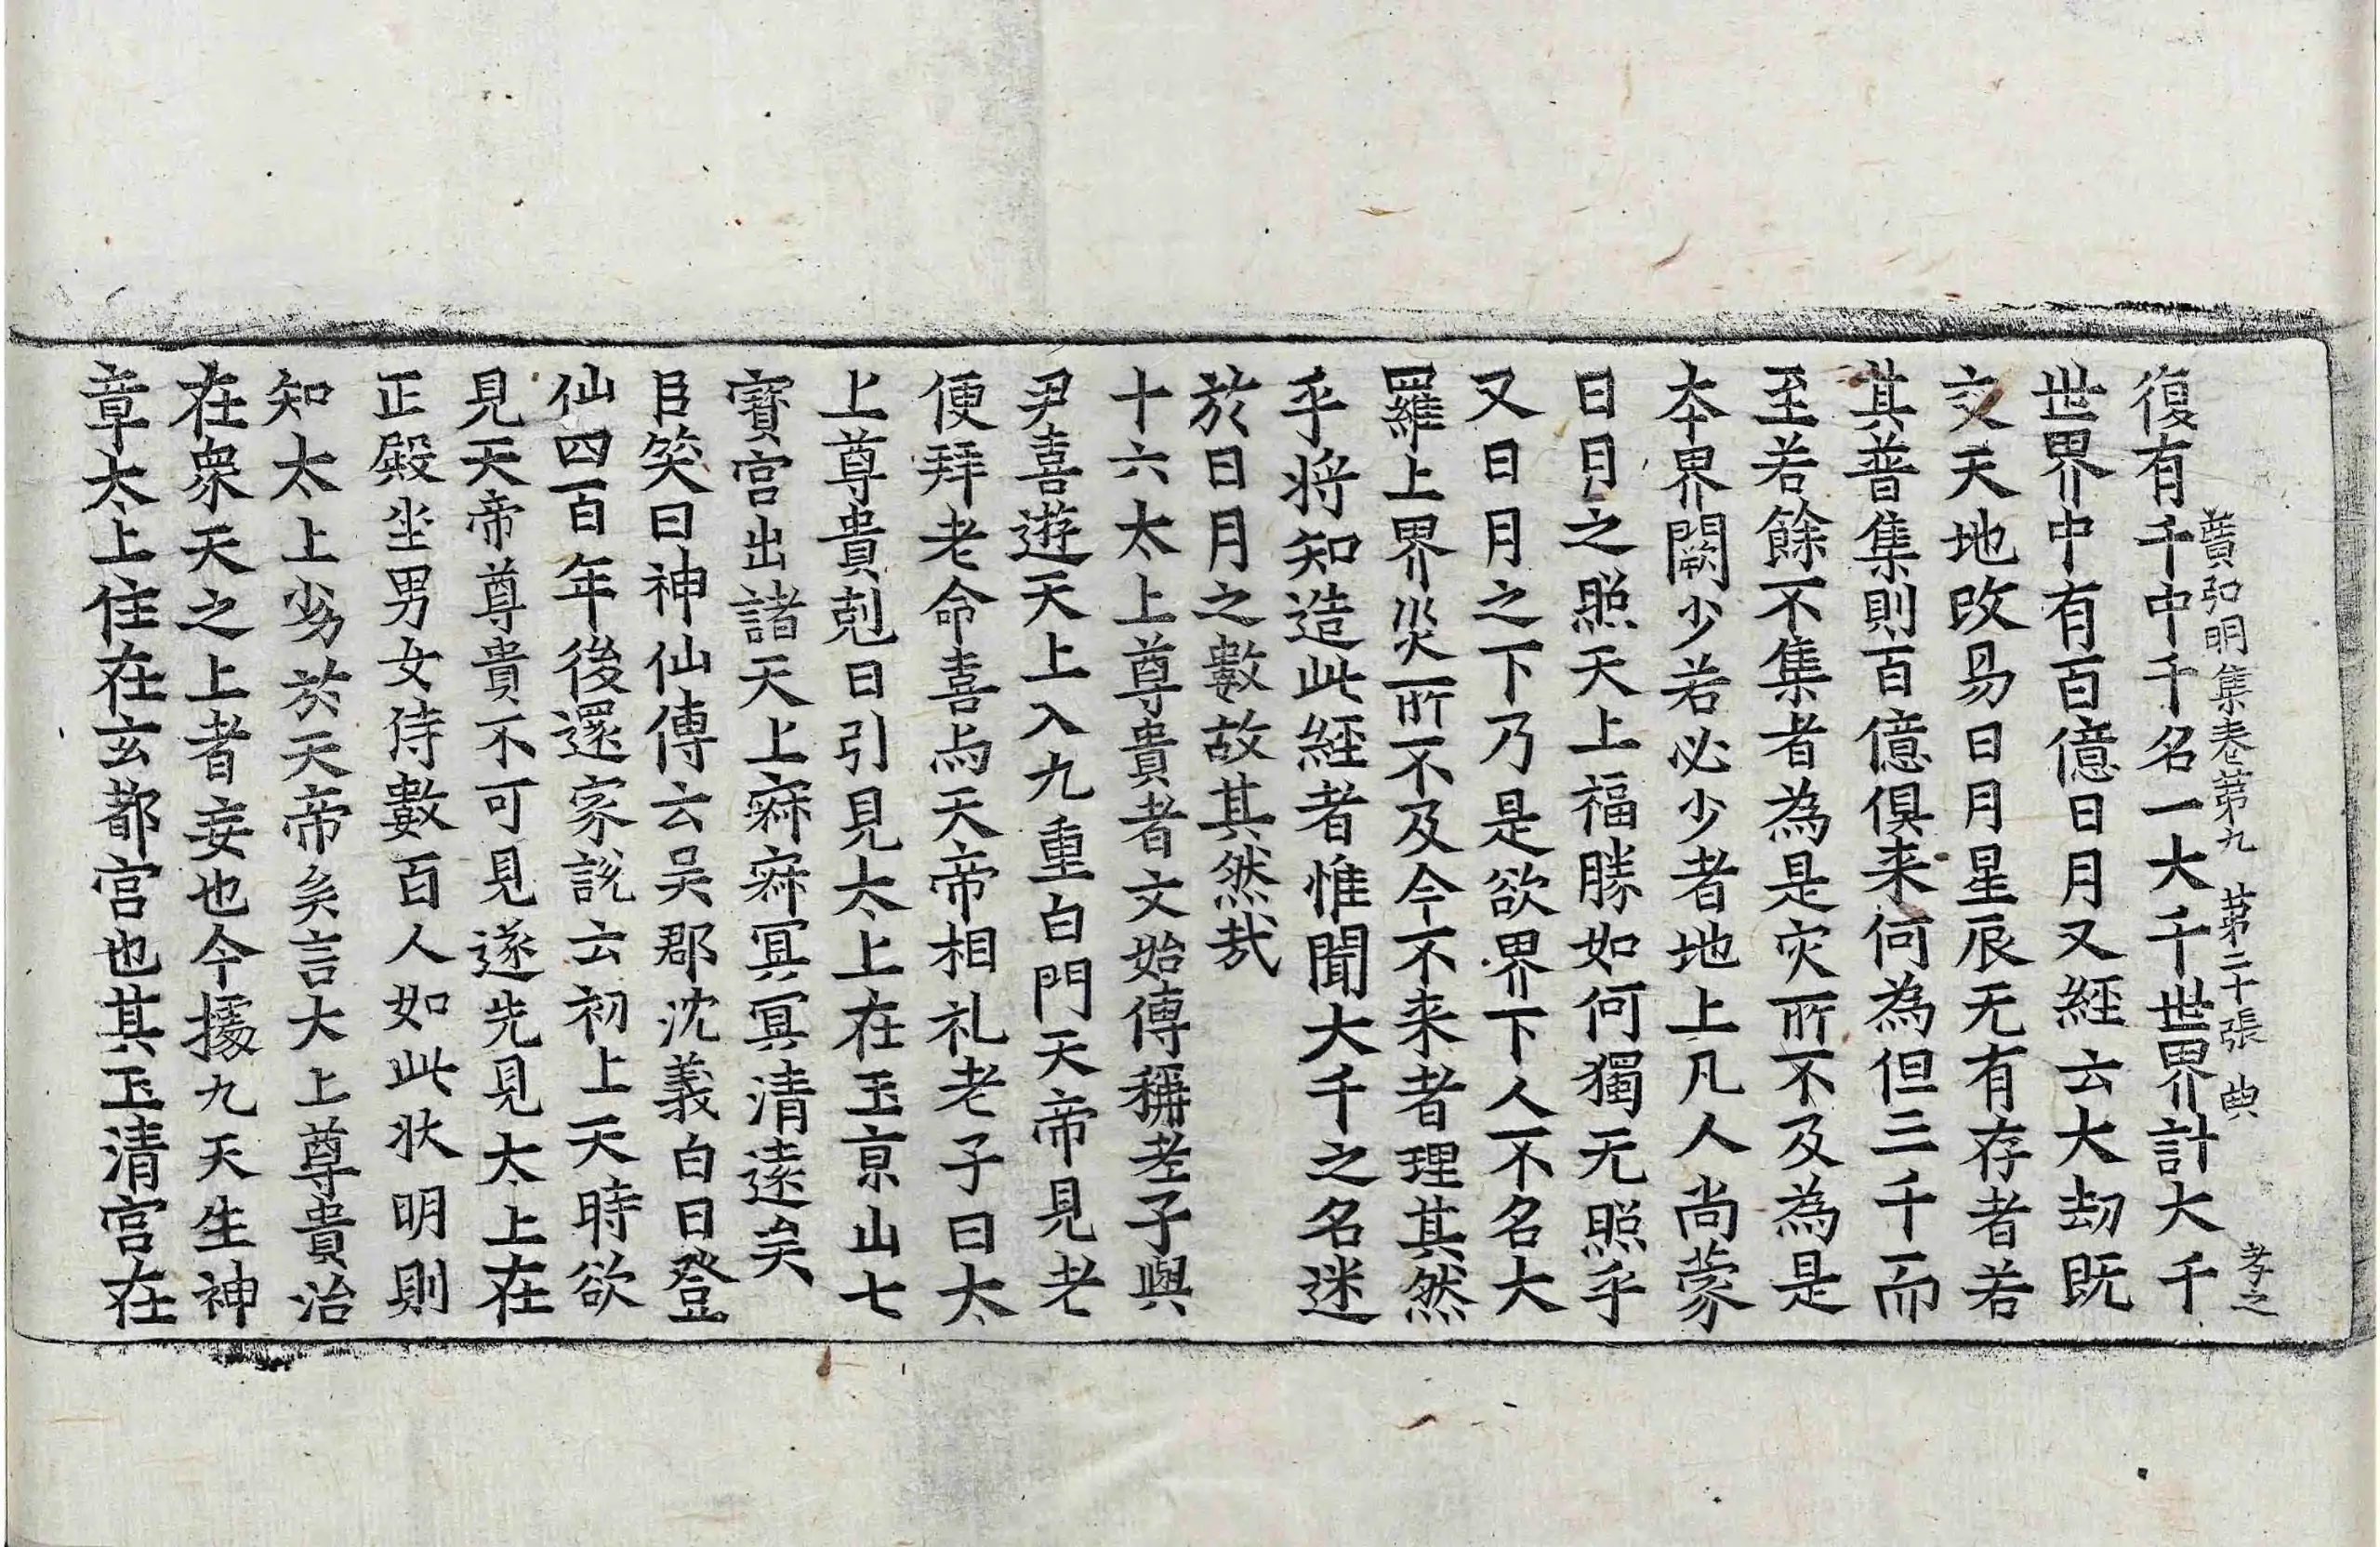 復有千中千名一大千世界計大千
廣弘明集卷第九 第二十張 典 孝之
世界中有百億日月又經云大劫既
交天地改易日月星辰无有存者若
其普集則百億俱来何為但三千而
至若餘不集者為是灾所不及為是
本界闕少若必少者地上凡人尚蒙
日月之照天上福勝如何獨无照乎
又日月之下乃是欲界下人不名大
羅上界災所不及今不来者理其然
乎将知造此經者惟聞大千之名迷
於日月之數故其然㢤
十六太上尊貴者文始傳稱老子與
尹喜遊天上入九重白門天帝見老
便拜老命喜与天帝相礼老子曰太
上尊貴剋日引見太上在玉京山七
寶宮出諸天上寂寂冥冥清遠矣
臣笑曰神仙傳云吴郡沈義白日登
仙四百年後還家說云初上天時欲
見天帝尊貴不可見遂先見太上在
正殿坐男女侍數百人如此狀明則
知太上劣於天帝矣言大上尊貴治
在衆天之上者妄也今據九天生神
章太上住在玄都宫也其玉清宫在